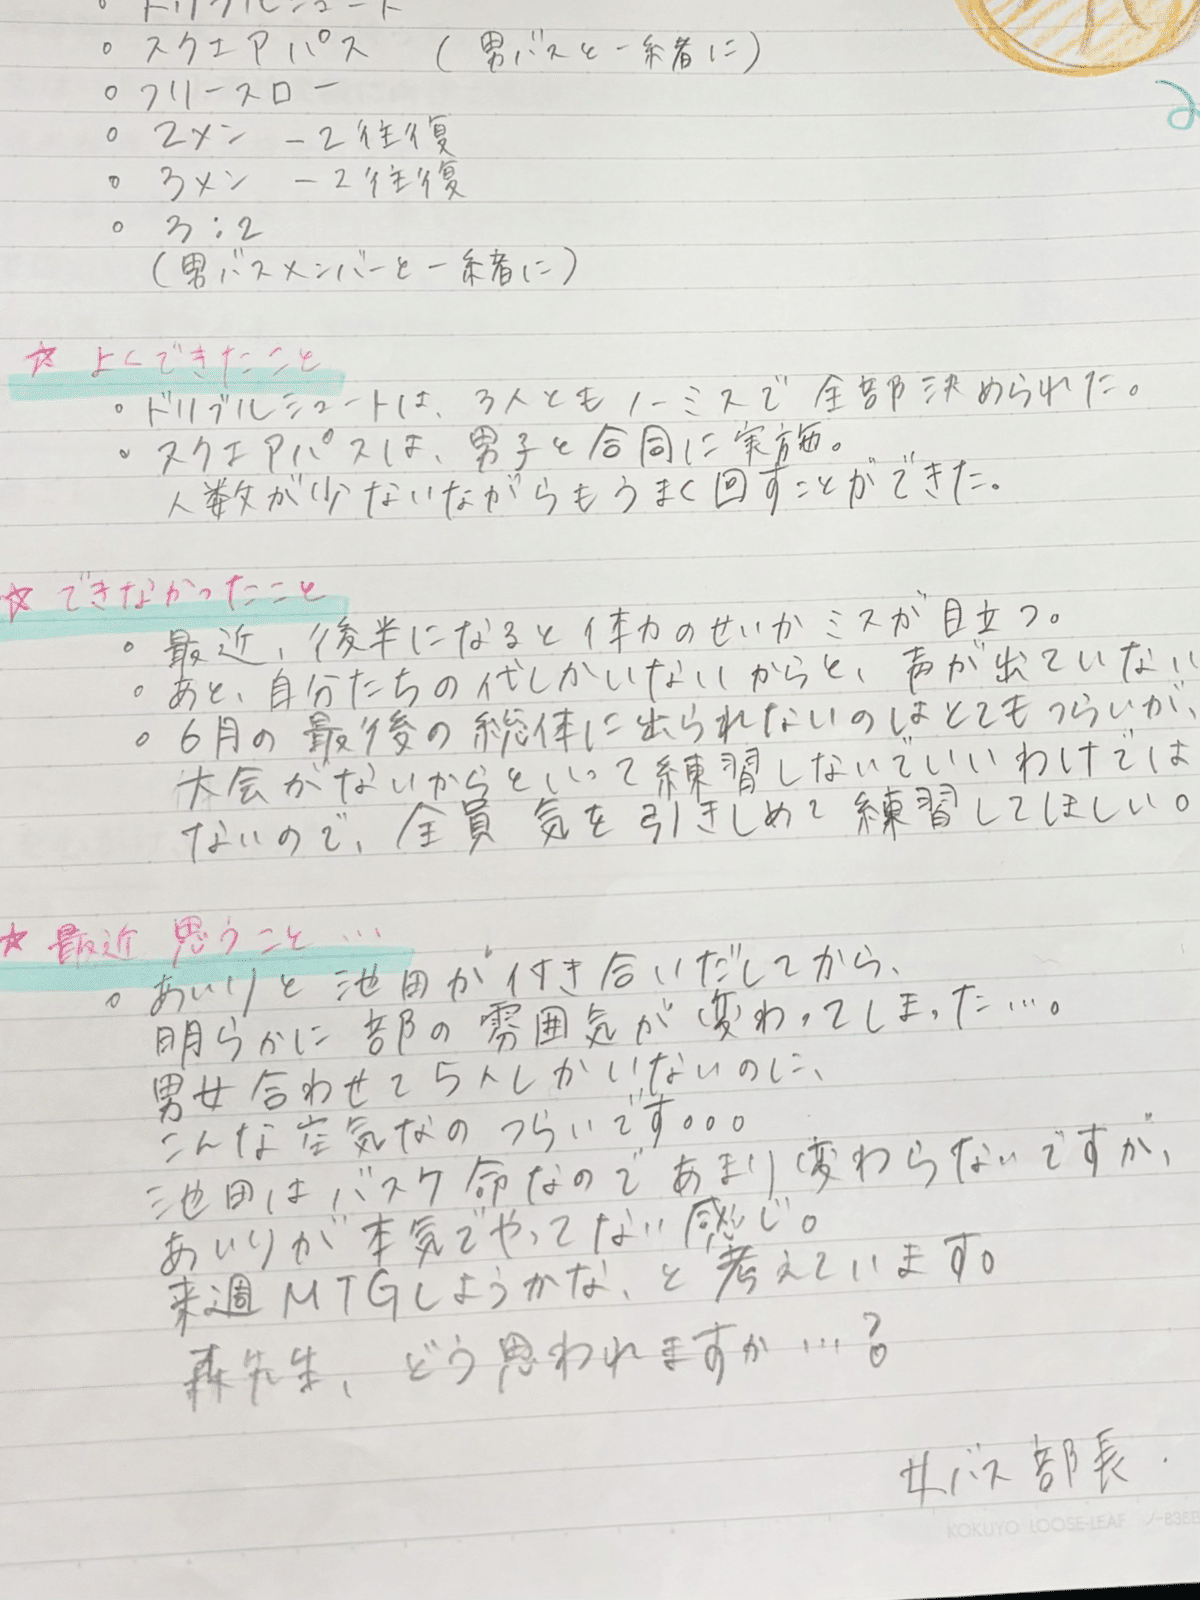 ・ドリブルシュート
・スクエアパス （男バスと一緒に）
・フリースロー
・2メン －2往復
・3メン －2往復
・3：2
（男バスメンバーと一緒に）
☆ よくできたこと
・ドリブルシュートは、3人ともノーミスで全部決められた。
・スクエアパスは、男子と合同に実施。
人数が少ないながらもうまく回すことができた。
☆ できなかったこと
・最近、後半になると体力のせいかミスが目立つ。
・あと、自分たちの代しかいないからと、声が出ていない
・6月の最後の総体に出られないのはとてもつらいが、
大会がないからといって練習しないでいいわけでは
ないので、全員 気を引きしめて練習してほしい。
☆ 最近 思うこと…
・あいりと池田が付き合いだしてから、
明らかに部の雰囲気が変わってしまった…。
男女合わせて5人しかいないのに、
こんな空気なのつらいです。。。
池田はバスケ命なのであまり変わらないですが、
あいりが本気でやってない感じ。
来週MTGしようかな、と考えています。
森先生、どう思われますか…？
女バス部長.
KOKUYO LOOSE-LEAF